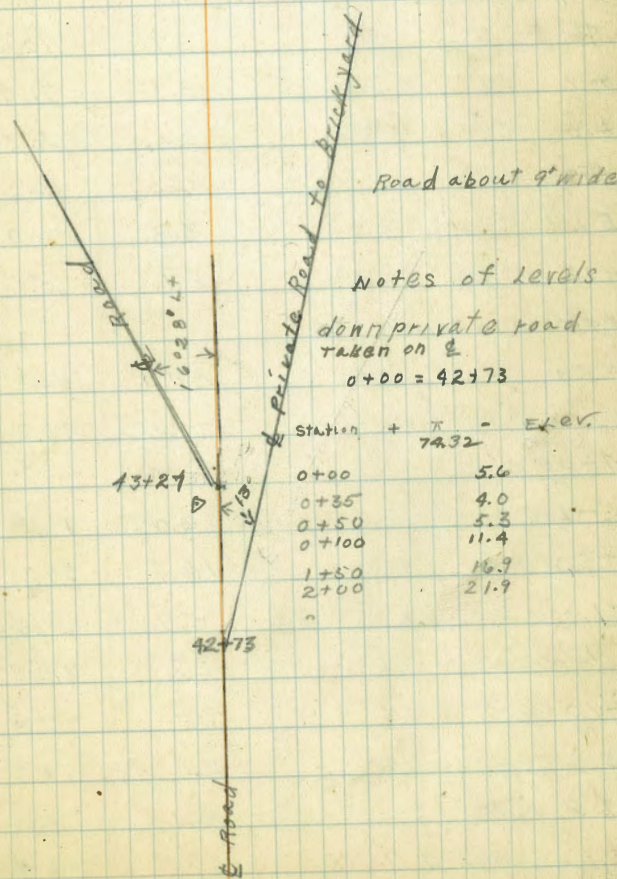 ℄ Private Road to Brickyard
Road about 9' wide
℄ Road
16°28' Lt
Notes of Levels
down private road
taken on ℄
0+00 = 42+73
Station + π - Elev.
74.32
0+00 5.6
0+35 4.0
0+50 5.3
0+100 11.4
1+50 16.9
2+00 21.9
43+27
13
42+73
℄ Road